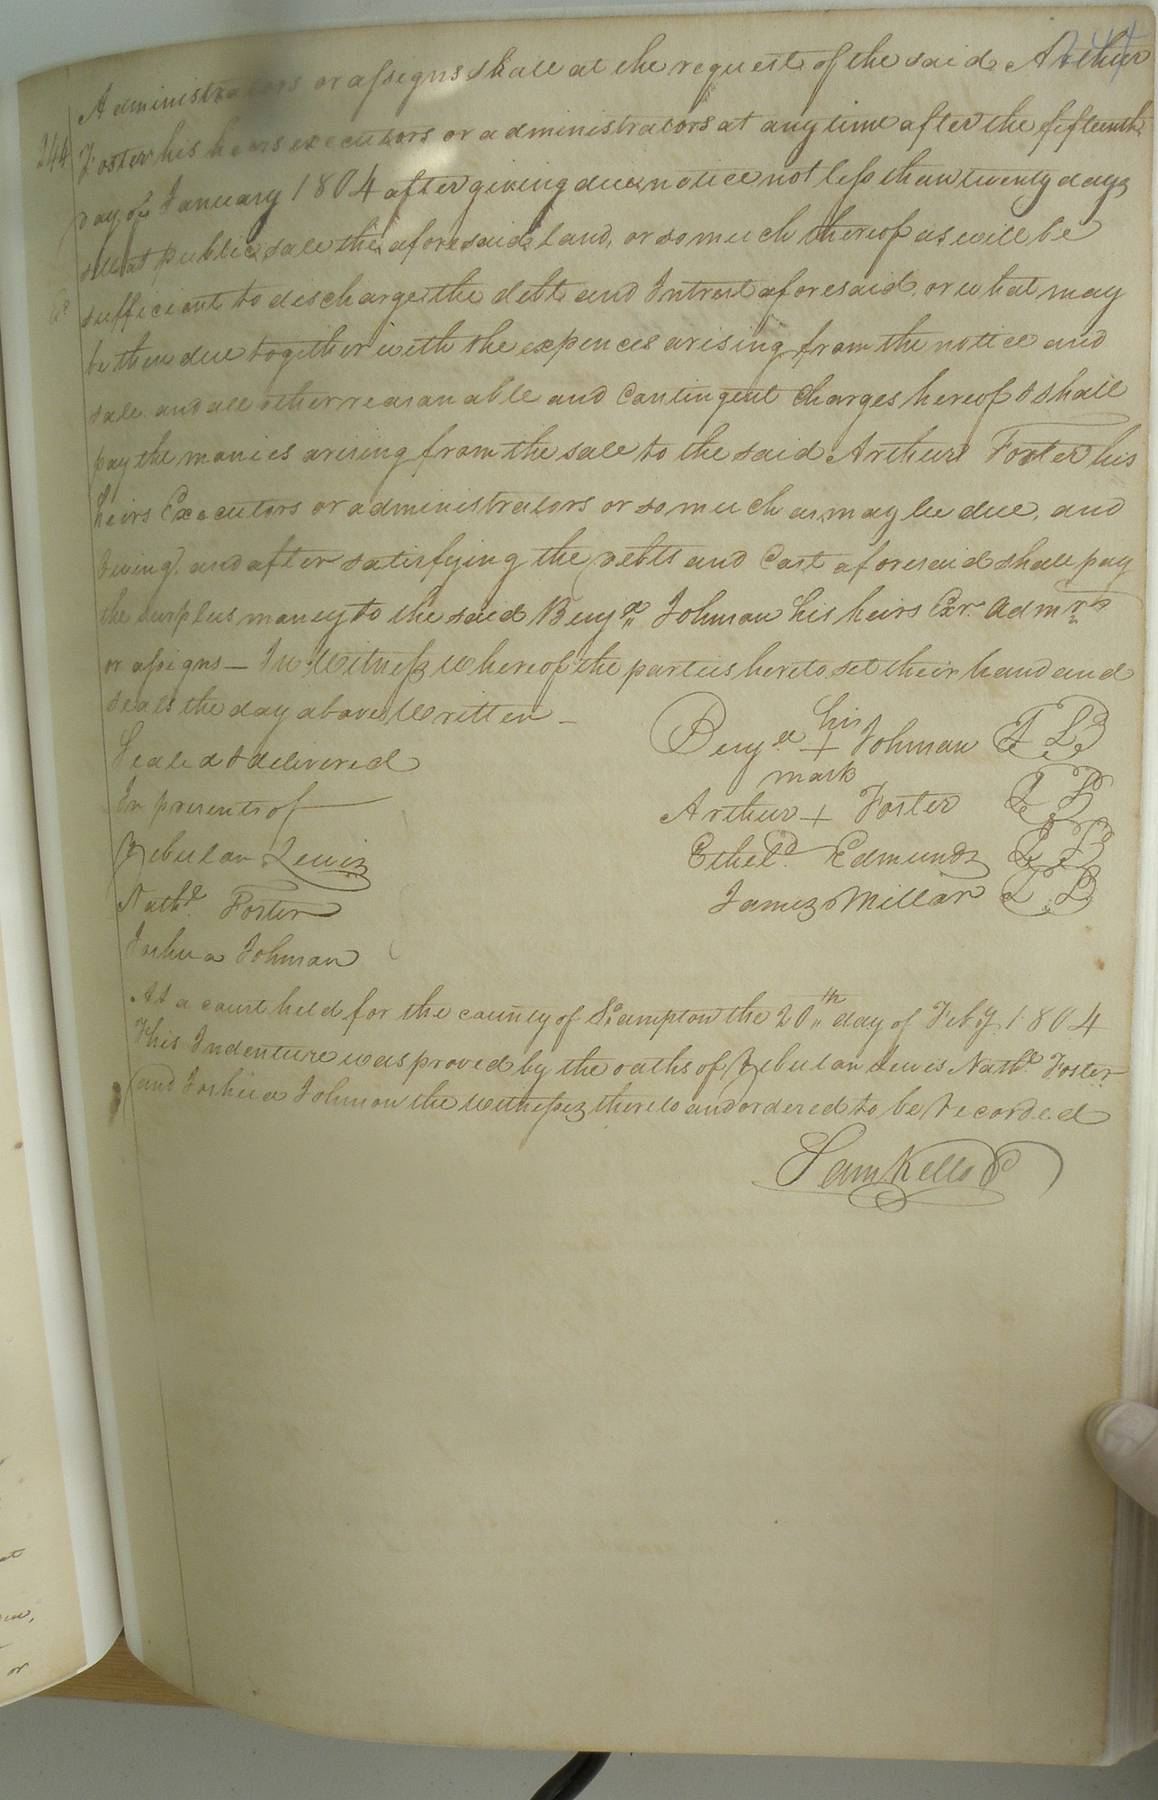 244
244
Administrators or assigns shall at the request of the said Arthur
Foster his heirs executors or administrators at any time after the fifteenth
Day of January 1804 after giving due notice not less than twenty days
sell at public sale the aforesaid Land, or so much thereof as will be
sufficient to descharge the debt and Intrest aforesaid or what may
be then due together with the expences arising from the notice and
sale and all other reasonable and Contingent Charges hereof & shall
pay the monies arising from the sale to the said Arthur Foster his
heirs Executors or administrators or so much as may be due, and
owing, and after satisfying the debts and Cost aforesaid shall pay
the surplus money to the said Benja Johnson his heirs Exr. Admrs
or assigns — In Witness whereof the parties hereto set their hand and
seals the day above Written —
his
Benja + Johnson LS
mark
Sealed & delivered
In presents of
Arthur + Foster LS
Zebulon Lewis
Etheld. Edmunds LS
Nathl. Foster
James Millar LS
Joshua Johnson
At a court held for the county of So.ampton the 20th day of Feby 1804
This Indenture was proved by the oaths of Zebulon Lewis Nathl. Foster
and Joshua Johnson the witnesses thereto and ordered to be recorded
Sam Kello